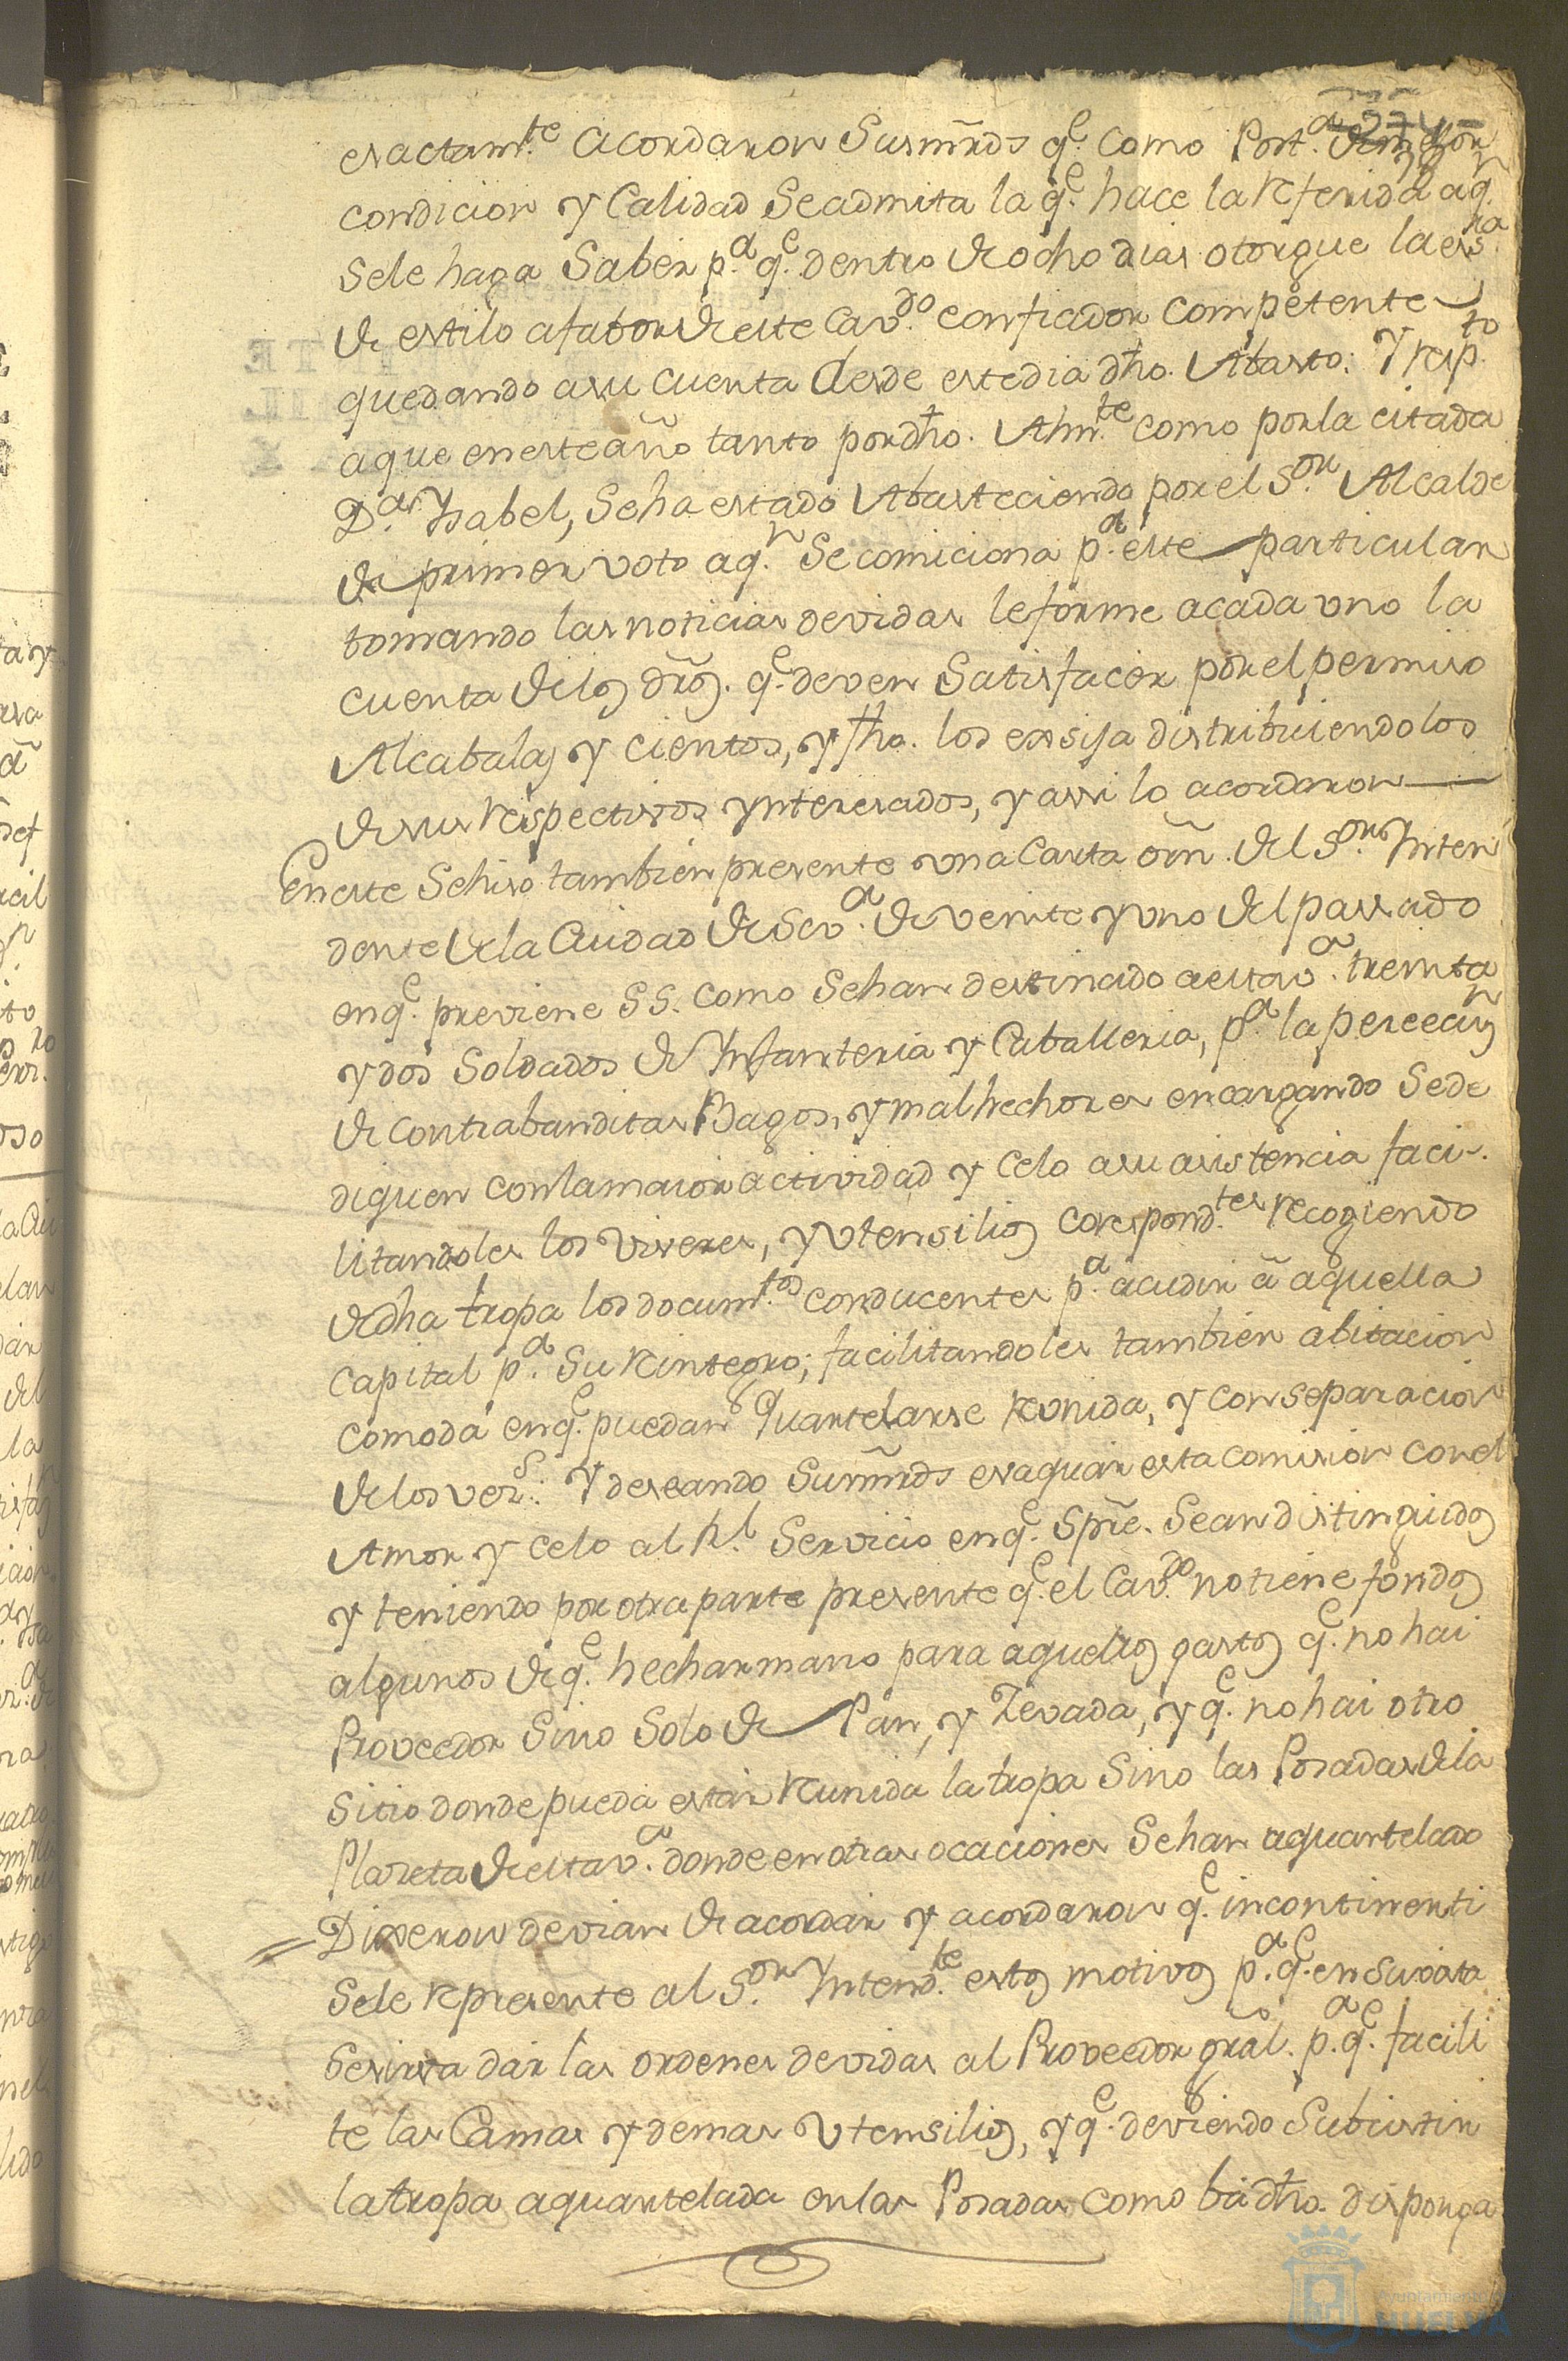 exactam.te acordaron Susmrds q.e como Post.a de mejor
condicion y Calidad Seadmita la q.e hace la Referida aq.n
sele haga Saber p.a q.e dentro de ocho dias otorgue la ess.ra
de estilo afabor de este Cav.do con fiador competente
quedando asu cuenta desde estedia dho. Abasto: Y resp.to
aque eneste año tanto por dho. Ahm.te como por la citada
D.a Ysabel, Seha estado Abasteciendo por el S.or Alcalde
de primer voto aq.n Se comiciona p.a este particular
tomando las noticias devidas le forme acada uno la
cuenta de los dros. q.e deven Satisfacer por el permiso
Alcabalas y cientos, y fho. los exsija distribuiendolos
de sus respectivos ynteresados, y assi lo acordaron
En este Sehiso tambien presente una Carta orn. del S.or Ynten
dente de la Ciudad de Sev.a de veinte y uno del passado
enq.e previene SS. como Sehan destinado aesta v.a treinta
y dos Soldados de Ynfanteria y Caballeria, p.a la persecu.n
de contrabanditas Bagos, y malhechores encargando Sede
diquen conlamaior actividad y celo asu asistencia faci-
litandoles los viveres, y utensilios correspond.tes recogiendo
de dha tropa los docum.tos conducentes p.a acudir à aquella
capital p.a Su Reintegro; facilitandoles tambien abitacion
comoda enq.e puedan Quartelarse reunida, y con separacion
de los vez.s: Y deseando Susmrds evaquar esta comision con el
Amor y celo al R.l Servicio enq.e Spre. Sean distinguidos
y teniendo por otra parte presente q.e el Cav.do no tiene fondos
algunos de q.e hechar mano para aquellos gastos q.e no hai
Proveedor Sino Solo de Pan, y Zevada, y q.e no hai otro
sitio donde pueda estar Reunida la tropa Sino las Posadas de la
Plazeta de esta v.a donde en otras ocaciones Sehan aquartelado
= Dixeron devian de acordar y acordaron q.e incontinenti
Sele represente al S.or Yntend.te estos motivos p.a q.e en su vista
Sesirva dar las ordenes devidas al Proveedor gral. p.a q.e facili
te las Camas y demas utensilios, y q.e deviendo Subsistir
la tropa aquartelada en las Posadas como bá dho. disponga
Ayuntamiento de
HUELVA